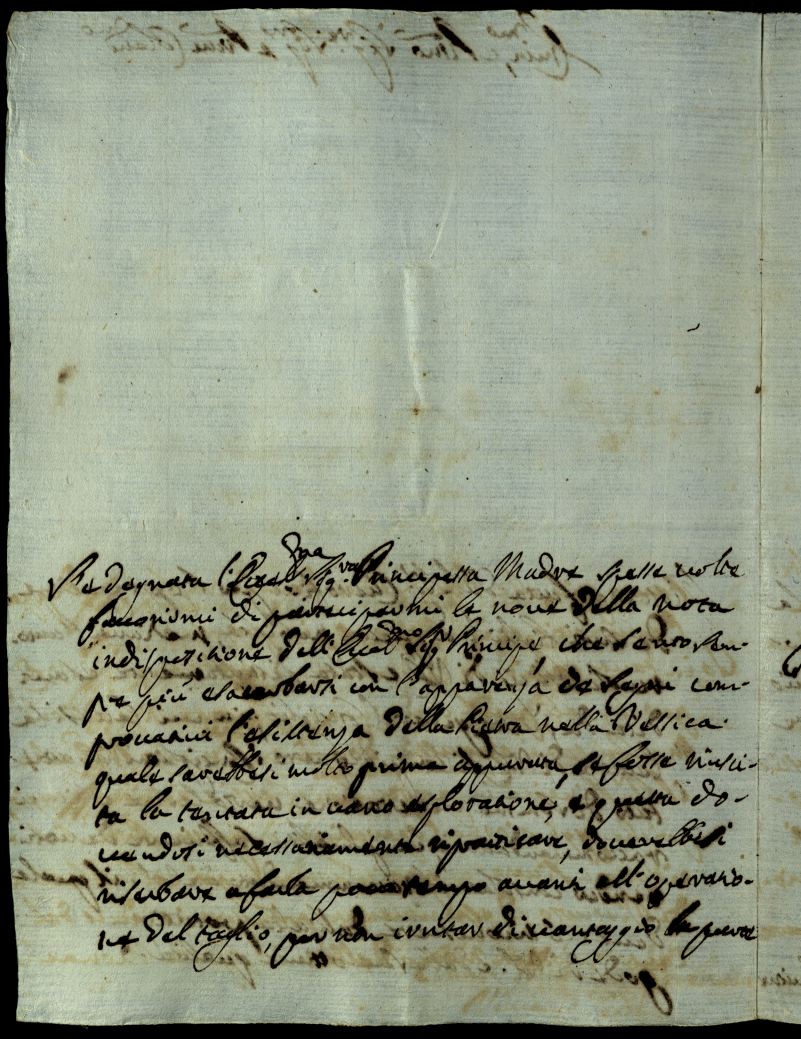 S'è degnata l'Ecc.ma Sig.ra Principessa Madre spesse volte
favorirmi di participarmi le nove della nota
indispositione dell'Ecc.mo Sig.r Principe, che sento sem-
pre più esacerbarsi con l'apparenza de segni com-
provativi l'esistenza della Pietra nella Vessica
quale sarebbesi molto prima appurata, se fosse riusci-
ta la tentata in vano esploratione, e questa do-
vendosi necessariamente ripraticare, doverebbesi
riserbare a farla poco tempo avanti all'operatio-
ne del taglio, per non irritar di vantaggio la parte